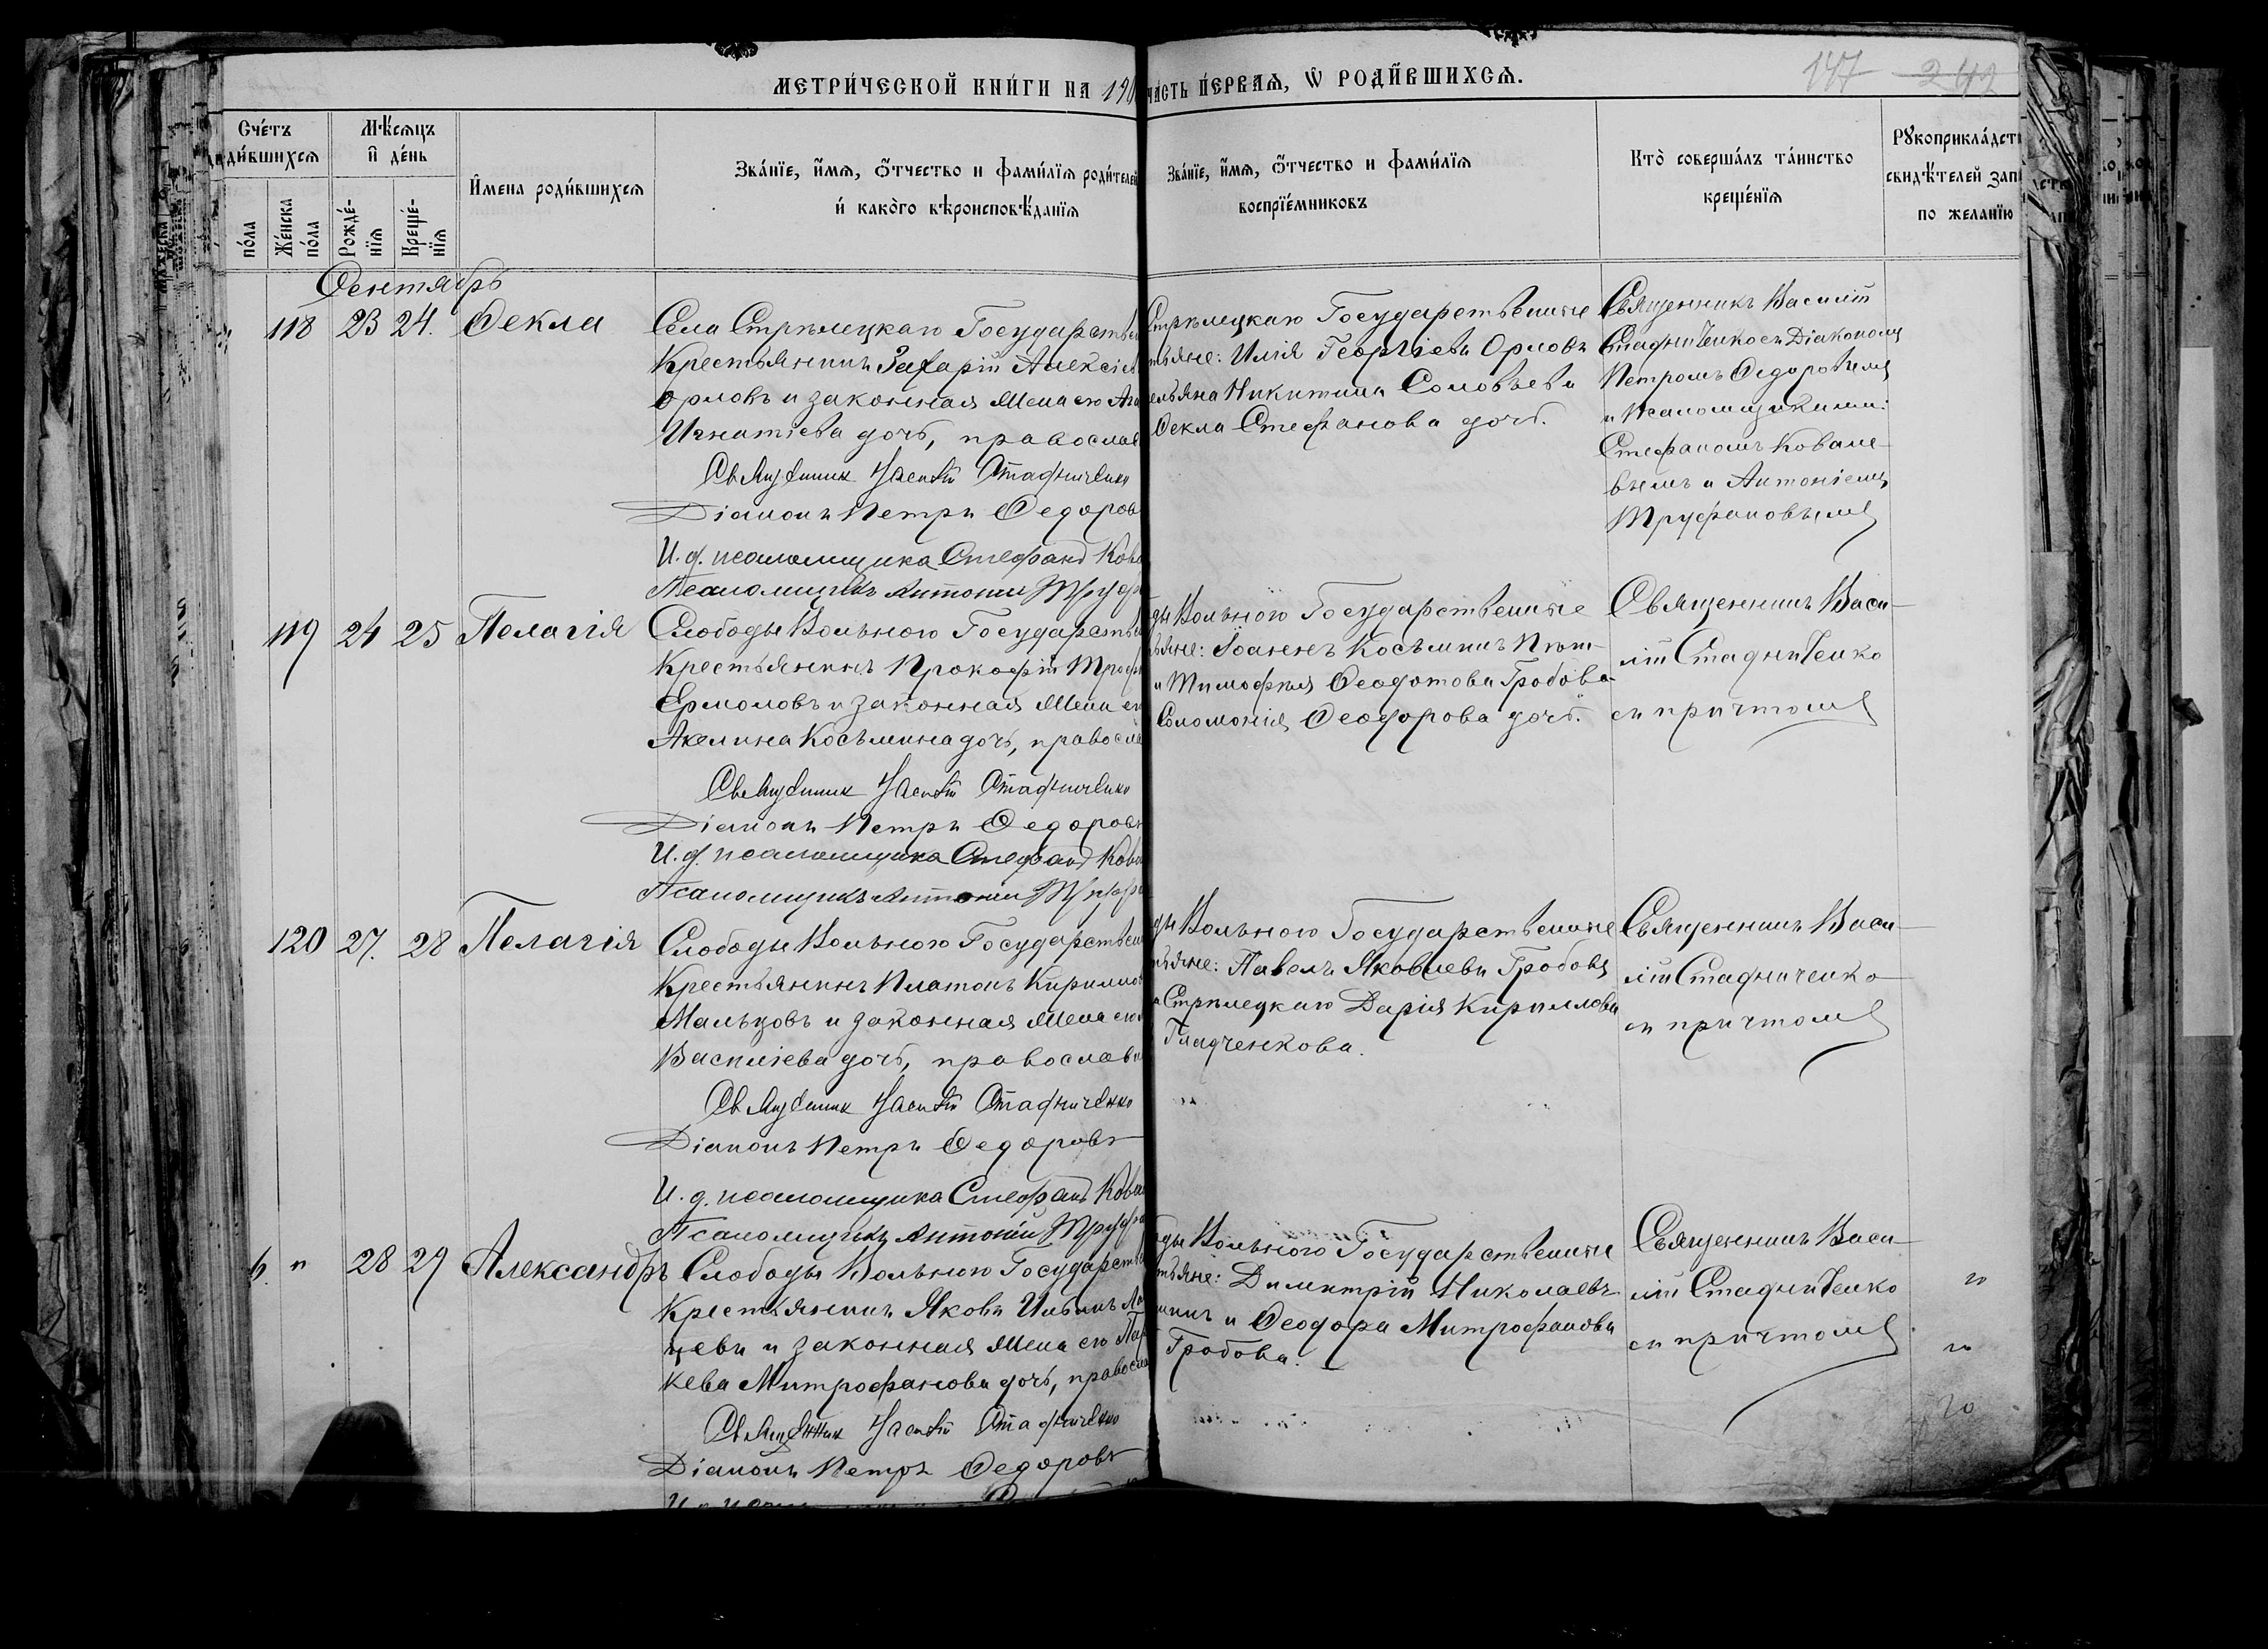 МЕТРИ́ЧЕСКОЙ КНИ́ГИ НА 190
ЧАСТЬ ПЕ́РВАЯ, Ѡ РОДИ́ВШИХСЯ.
147 242
Сче́тъ
роди́вшихся
по́ла
Же́нска
по́ла
Мѣ́сяцъ
и де́нь
Рожде́-
нїя
Креще́-
нїя
И҆мена роди́вшихся
Зва́нїе, и҆́мя, ѻ҆́тчество и фами́лїя роди́телей
и како́го вѣроисповѣ́данїя
Зва́нїе, и҆́мя, ѻ҆́тчество и фами́лїя
воспрїе́мниковъ
Кто̀ соверша́лъ та́инство
креще́нїя
Рꙋкоприкла́дст
свидѣ́телей запи
по желанїю
Сентябрь
118 23 24. Ѳекла
Села Стрѣлецкаго Государствен
Крестьянинъ Захарій Алексіев
Орловъ и законная жена его Ага
Игнатіева дочь, православ
Священник Василій Стадниченко
Діаконъ Петръ Ѳедоров
И. д. псаломщика Стефанъ Кова
Псаломщикъ Антоній Труф
Стрѣлецкаго Государственные
тьяне: Илія Георгіевъ Орловъ
ельяна Никитина Соловьева
Ѳекла Стефанова дочь.
Священникъ Василій
Стадниченко съ Діакономъ
Петромъ Ѳедоровымъ
и Псаломщиками:
Стефаномъ Ковале-
вымъ и Антоніемъ
Труфановымъ
119 24 25 Пелагія
Слободы Вольного Государствен
Крестьянинъ Прокофій Троф
Ермоловъ и законная жена ег
Акелина Косьмина дочь, правосла
Священник Василій Стадниченко
Діаконъ Петръ Ѳедоровъ
И. д. псаломщика Стефанъ Кова
Псаломщикъ Антоній Труфа
ды Вольного Государственные
ьяне: Іоаннъ Косьминъ
и Тимофѣя Ѳеодотова Гробова
Соломонія Ѳеодорова дочь.
Священникъ Васи-
лій Стадниченко
съ причтомъ
120 27. 28 Пелагія
Слободы Вольного Государствен
Крестьянинъ Платонъ Кириллов
Мальцовъ и законная жена его
Василіева дочь, православн
Священник Василій Стадниченко
Діаконъ Петръ Ѳедоровъ
И. д. псаломщика Стефанъ Кова
Псаломщикъ Антоній Труфа
ды Вольного Государственные
тьяне: Павелъ Яковлевъ Гробовъ
и Стрѣлецкаго Дарія Кириллова
Гладченкова.
Священникъ Васи-
лій Стадниченко
съ причтомъ
6. " 28 29 Александръ
Слободы Вольного Государств
Крестьянинъ Яковъ Ильинъ
цевъ и законная жена его Пар
кева Митрофанова дочь, правосла
Священник Василій Стадниченко
Діаконъ Петръ Ѳедоровъ
ды Вольного Государственные
тьяне: Димитрій Николаевъ
и Ѳеодора Митрофанова
Гробова.
Священникъ Васи-
лій Стадниченко
съ причтомъ